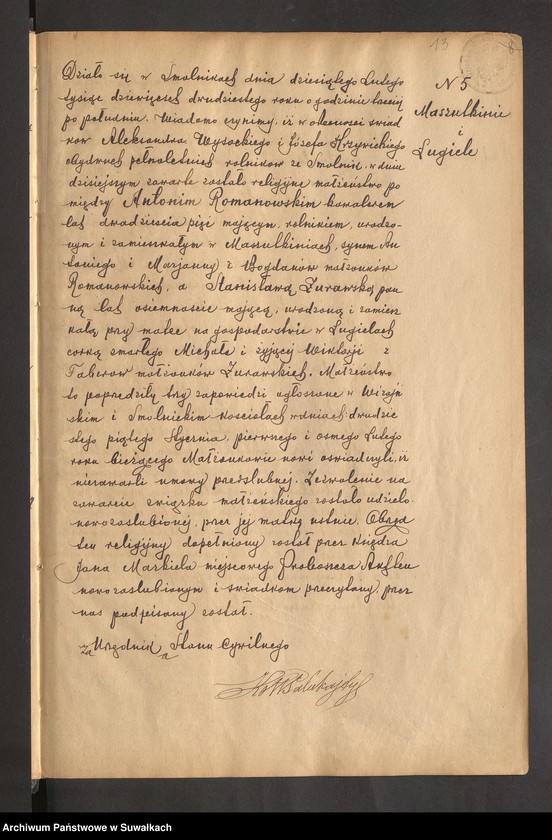 13
N 5
Maszutkinie
i
Ługiele
Działo się w Smolnikach dnia dziesiątego Lutego
tysiąc dziewięćset dwudziestego roku o godzinie
po południu. Wiadomo czynimy, iż w obecności świad
ków Aleksandra Wysockiego i Józefa Krzywickiego
obydwuch pełnoletnich rolników ze Smolnik, w dniu
dzisiejszym zawarte zostało religijne małżeństwo po
między Antonim Romanowskim kawalerem
lat dwadzieścia pięć mającym, rolnikiem, urodzo-
nym i zamieszkałym w Maszutkiniach, synem An
toniego i Marjanny z Bogdanów małżonków
Romanowskich, a Stanisławą Żurawską pan
ną lat osiemnaście mającą, urodzoną i zamiesz
kałą przy matce na gospodarstwie w Ługielach
córką zmarłego Michała i żyjącej Wiktorji z
Taberów małżonków Żurawskich. Małżeństwo
to poprzedziły trzy zapowiedzi ogłoszone w Wiżajń
skim i Smolnickim Kościołach w dniach: dwudzie
stego piątego Stycznia, pierwszego i ósmego Lutego
roku bieżącego Małżonkowie nowi oświadczyli, iż
niezawarli umowy przedślubnej. Zezwolenie na
zawarcie związku małżeńskiego zostało udzielo
nowozaślubionej, przez jej matkę ustnie. Obrzęd
ten religijny dopełniony został przez Księdza
Jana Markiela miejscowego Proboszcza Akt ten
nowozaślubionym i świadkom przeczytany, przez
nas podpisany został.
za Urzędnik a Stanu Cywilnego
Archiwum Państwowe w Suwałkach